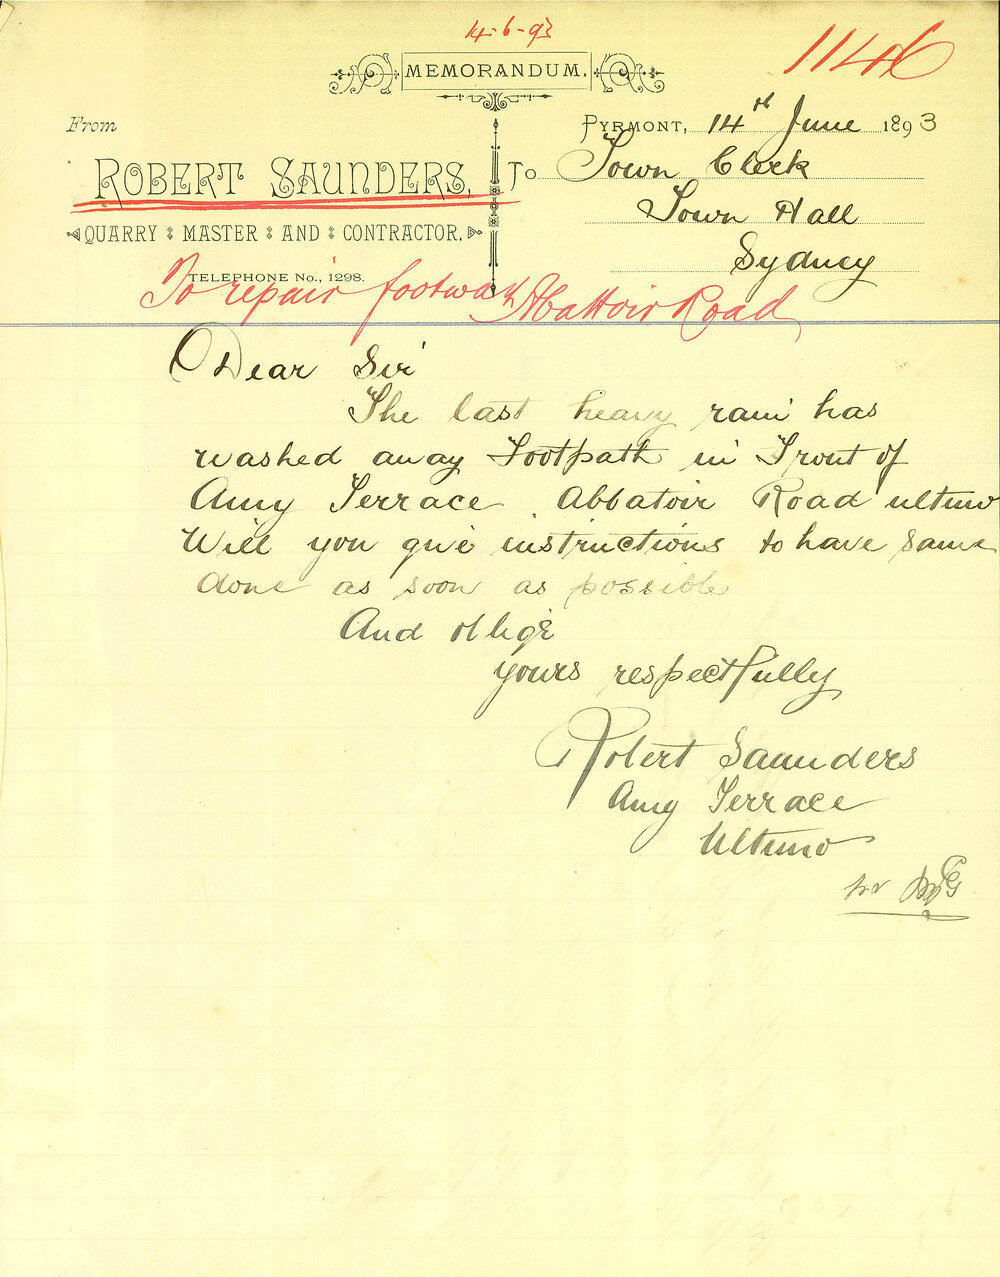 14-6-93
1146
MEMORANDUM.
From
PYRMONT, 14th June 1893
ROBERT SAUNDERS,
To Town Clerk
Town Hall
QUARRY MASTER AND CONTRACTOR.
Sydney
TELEPHONE No., 1298.
To repair footway Abattoir Road
Dear Sir
The last heavy rain has
washed away Footpath in Front of
Amy Terrace Abbatoir Road ultimo
Will you give instructions to have same
done as soon as possible
And oblige
yours respectfully
Robert Saunders
Amy Terrace
Ultimo